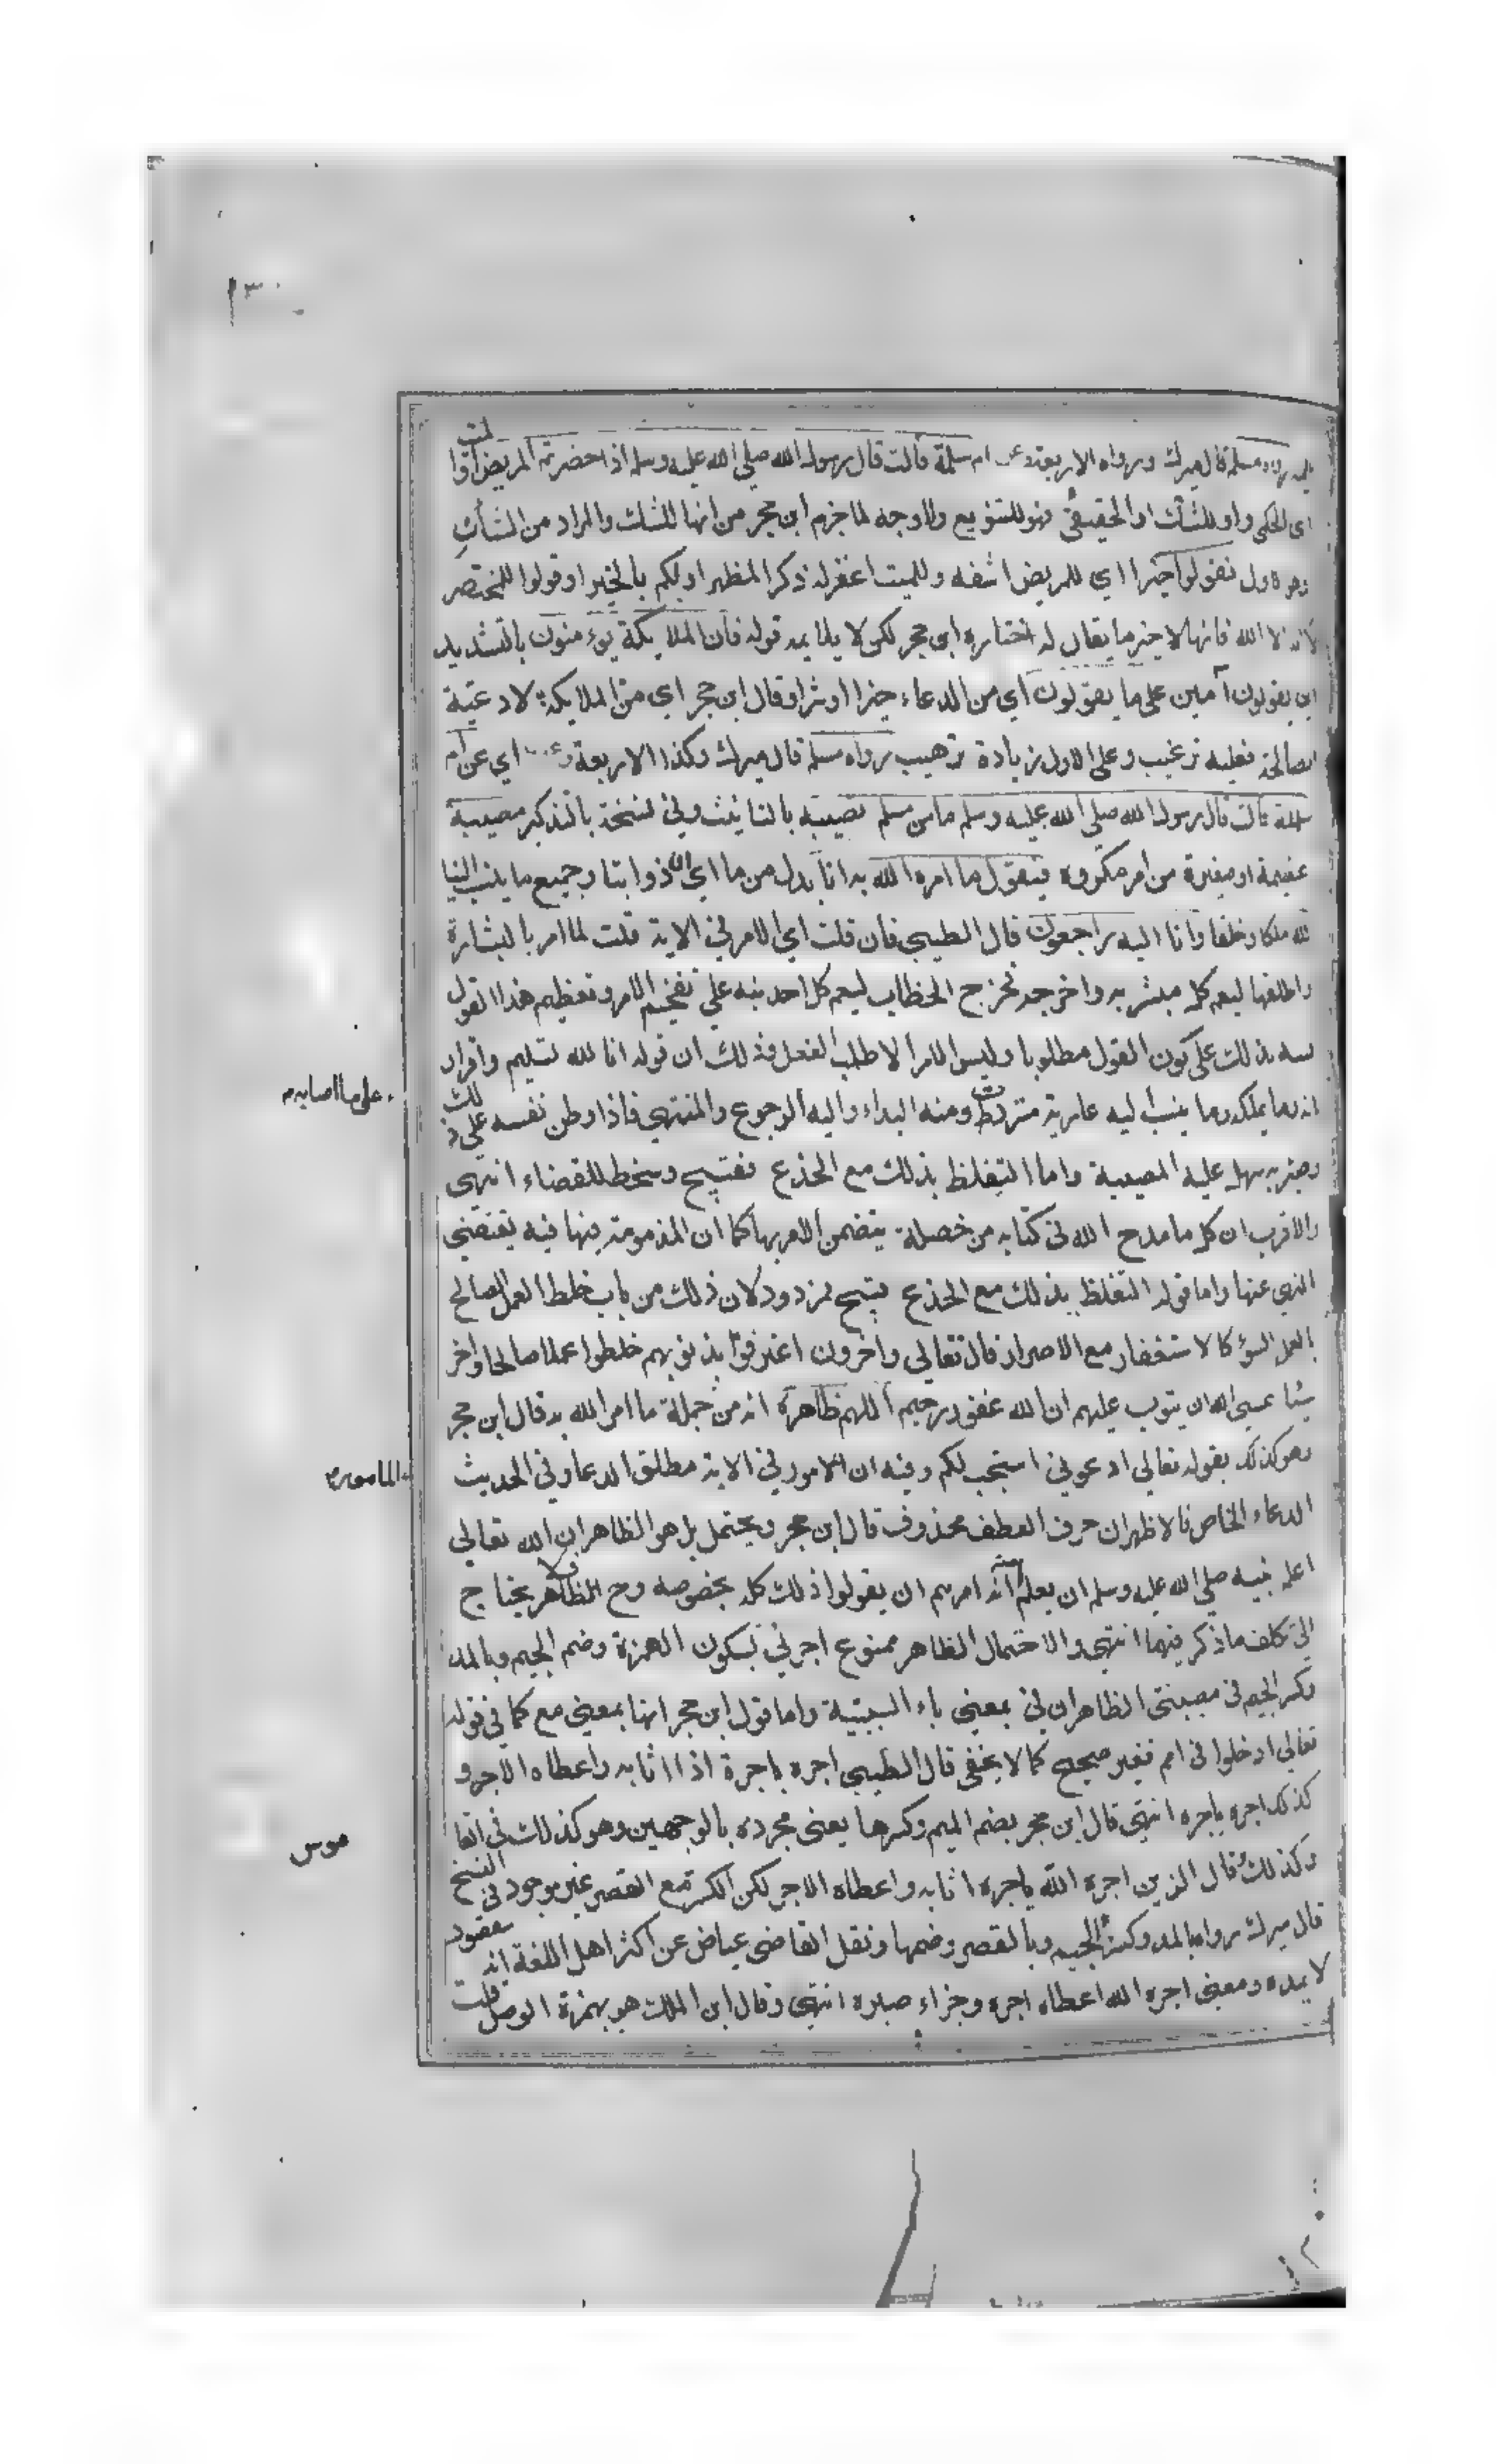 ١٣٠
رواه مسلم قال ميرك ورواه الاربعة وعن ام سلمة قالت قال رسول الله صلى الله عليه وسلم اذا حضرتم المريض او الميت
اي الحكمي واو للشك او الحقيقي فهو للتنويع ولا وجه لما جزم ابن حجر من انها للشك والمراد من الشك
فقولوا خيرا اي للمريض اشفه وللميت اغفر له ذكر المظهر او لكم بالخير او قولوا للمحتضر
لا اله الا الله فانها لا خير ما يقال له اختاره ابن حجر لكن لا يلايمه قوله فان الملايكة يؤمنون بالتشديد
اي يقولون آمين على ما يقولون اي من الدعاء خيرا او شرا وقال ابن حجر اي من الملايكة لا دعية
الصالحة فعليه ترغيب وعلى الاول زيادة ترهيب رواه مسلم قال ميرك وكذا الاربعة وعنها اي عن ام
سلمة قالت قال رسول الله صلى الله عليه وسلم ما من مسلم تصيبه بالتانيث وفي نسخة بالتذكير مصيبة
عظيمة او صغيرة من امر مكروه فيقول ما امره الله به انا بدل من ما اي ان ذواتنا وجميع ما ينسب الينا
لله ملكا وخلقا وانا اليه راجعون قال الطيبي فان قلت اي الامر في الاية قلت لما امر بالبشارة
واطلقها ليعم كل مبشر به واخرجه مخرج الخطاب ليعم كل احد نبه على تفخيم الامر وتعظيم هذا القول
بذلك على كون القول مطلوبا وليس الامر الا طلب الفعل وذلك ان قوله انا لله تسليم واقرار
انه وما يملكه وما ينسب اليه عارية مستردة ومنه البداء واليه الرجوع والمنتهى فاذا وطن نفسه على ذلك
وصبر به سهل عليه المصيبة واما التلفظ بذلك مع الجزع فقبيح وسخط للقضاء انتهى
على ما اصابه م
والاقرب ان كل ما مدح الله في كتابه من خصلة يتضمن الامر بها كما ان المذمومة فيها فيه يقتضي
النهي عنها واما قوله التلفظ بذلك مع الجزع قبيح فمردود لان ذلك من باب خلط العمل الصالح
بالعمل السؤ كالاستغفار مع الاصرار قال تعالى واخرون اعترفوا بذنوبهم خلطوا عملا صالحا واخر
سيئا عسى الله ان يتوب عليهم ان الله غفور رحيم اللهم ظاهره انه من جملة ما امر الله به قال ابن حجر
وهو كذلك بقوله تعالى ادعوني استجب لكم وفيه ان المامور في الاية مطلق الدعا وفي الحديث
المامور به
الدعاء الخاص فالاظهر ان حرف العطف محذوف قال ابن حجر ويحتمل بل هو الظاهر ان الله تعالى
اعلم نبيه صلى الله عليه وسلم ان يعلم امته انه امرهم ان يقولوا ذلك كله بخصوصه وح الظاهر يحتاج
الى تكلف ما ذكر فيهما انتهى والاحتمال الظاهر ممنوع اجرني بسكون الهمزة وضم الجيم وبالمد
وكسر الجيم في مصيبتي الظاهر ان في بمعنى باء السببية واما قول ابن حجر انها بمعنى مع كما في قوله
تعالى ادخلوا في امم فغير صحيح كما لا يخفى قال الطيبي اجره ياجره اذا اثابه واعطاه الاجر و
كذلك اجره ياجره انتهى قال ابن حجر بضم الميم وكسرها يعنى مجرده بالوجهين وهو كذلك في القاموس
وكذلك قال الزين اجره الله ياجره اثابه واعطاه الاجر لكن الكسر مع القصر غير موجود في النسخ
قال ميرك رواه بالمد وكسر الجيم وبالقصر وضمها ونقل القاضي عياض عن اكثر اهل اللغة انه مقصور
لا يمد ومعنى اجره الله اعطاه اجره وجزاء صبره انتهى وقال ابن الملك هو بهمزة الوصل قلت